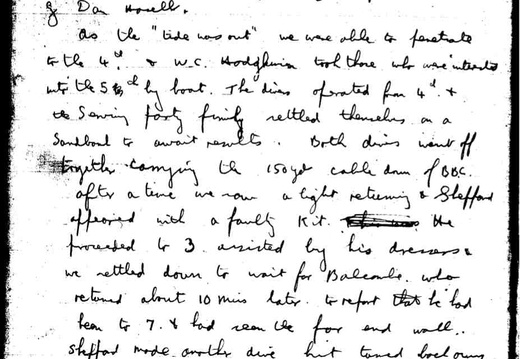 of Dan Howell.
As the "tide was out" we were able to penetrate
to the 4th & W.C. Hodgkinson took those who were interested
into the 5th by boat. The divers operated from 4th &
the Sewing party firmly settled themselves on a
Sandbank to await results. Both divers went off
together carrying the 150yd cable drum of BBC.
after a time we saw a light returning & Sheppard
appeared with a faulty Kit. He
proceeded to 3 assisted by his dressers &
we settled down to wait for Balcombe who
returned about 10 mins later to report that he had
been to 7. & had seen the far end wall.
Sheppard made another dive but turned back owing